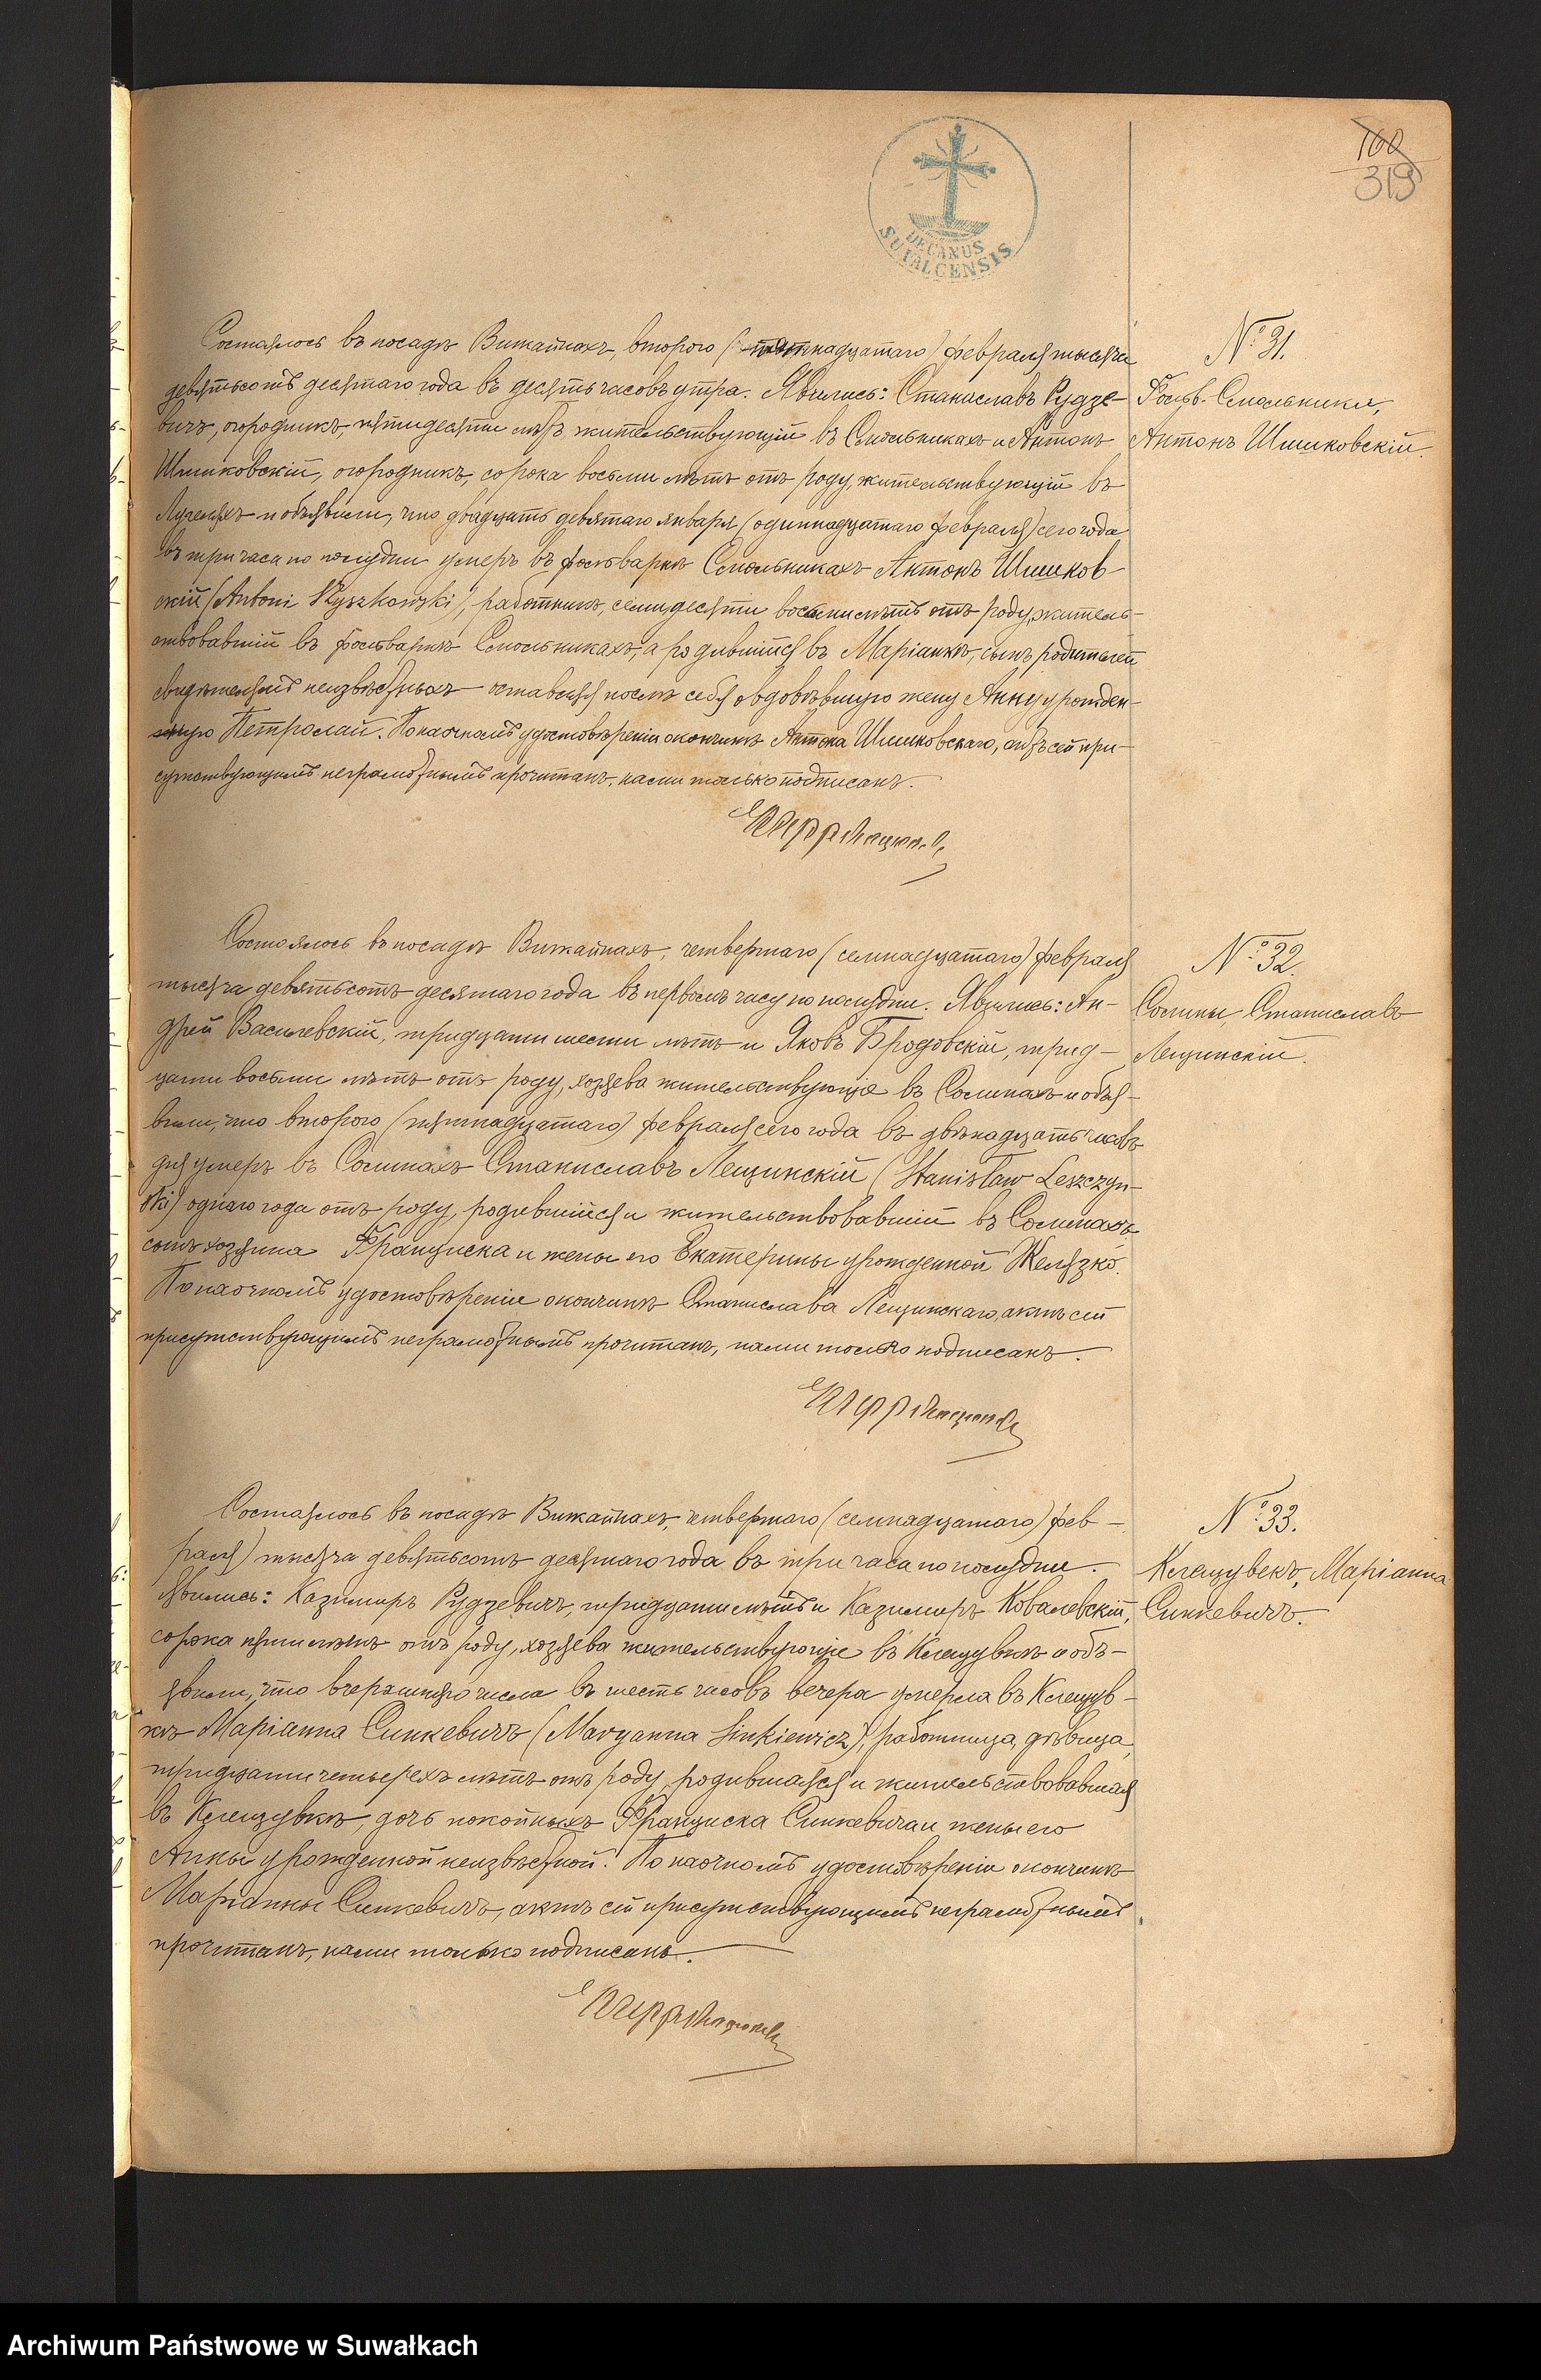 160
319
DECANUS
SUVALCENSIS
Состоялось въ посадѣ Вижайнахъ, второго (пятнадцатаго) февраля тысяча
девятьсотъ десятаго года въ десять часовъ утра. Явились: Станиславъ Рудзе-
вичъ, огородникъ, пятидесяти лѣтъ жительствующій въ Смольникахъ и Антонъ
Шишковскій, огородникъ, сорока восьми лѣтъ отъ роду, жительствующій въ
и объявили, что двадцать девятаго января (одиннадцатаго февраля) сего года
въ три часа по полудни умеръ въ фольваркѣ Смольникахъ Антонъ Шишков-
скій (Antoni Szyszkowski), работникъ, семидесяти восьми лѣтъ отъ роду, житель-
ствовавшій въ фольваркѣ Смольникахъ, а родившійся въ Маріанкѣ, сынъ родителей
свидѣтелямъ неизвѣстныхъ оставляя послѣ себя овдовѣвшую жену Анну урожден-
ную Петролай. По наочномъ удостовѣреніи о кончинѣ Антона Шишковскаго, актъ сей при-
сутствующимъ неграмотнымъ прочитанъ, нами только подписанъ.
№ 31.
Фольв. Смольники,
Антонъ Шишковскій.
Состоялось въ посадѣ Вижайнахъ, четвертаго (семнадцатаго) февраля
тысяча девятьсотъ десятаго года въ первомъ часу по полудни. Явились: Ан-
дрей Василевскій, тридцати шести лѣтъ и Яковъ Бродовскій, трид-
цати восьми лѣтъ отъ роду, хозяева жительствующіе въ Солинахъ и объя-
вили, что второго (пятнадцатаго) февраля сего года въ двѣнадцать часовъ
дня умеръ въ Солинахъ Станиславъ Лещинскій (Stanisław Leszczyń-
ski) одного года отъ роду, родившійся и жительствовавшій въ Солинахъ,
сынъ хозяина Франциска и жены его Екатерины урожденной Желязко.
По наочномъ удостовѣреніи о кончинѣ Станислава Лещинскаго, актъ сей
присутствующимъ неграмотнымъ прочитанъ, нами только подписанъ.
№ 32.
Солины, Станиславъ
Лещинскій.
Состоялось въ посадѣ Вижайнахъ, четвертаго (семнадцатаго) фев-
раля) тысяча девятьсотъ десятаго года въ три часа по полудни.
Явились: Казимиръ Рудзевичъ, тридцати лѣтъ и Казимиръ Ковалевскій,
сорока пяти лѣтъ отъ роду, хозяева жительствующіе въ Клещувкѣ и объ-
явили, что вчерашняго числа въ шесть часовъ вечера умерла въ Клещув-
кѣ Маріанна Синкевичъ (Maryanna Sinkiewicz) работница, дѣвица,
тридцати четырехъ лѣтъ отъ роду, родившаяся и жительствовавшая
въ Клещувкѣ, дочь покойныхъ Франциска Синкевича и жены его
Анны урожденной неизвѣстной. По наочномъ удостовѣреніи о кончинѣ
Маріанны Синкевичъ, актъ сей присутствующимъ неграмотнымъ
прочитанъ, нами только подписанъ.
№ 33.
Клещувекъ, Маріанна
Синкевичъ.
Archiwum Państwowe w Suwałkach